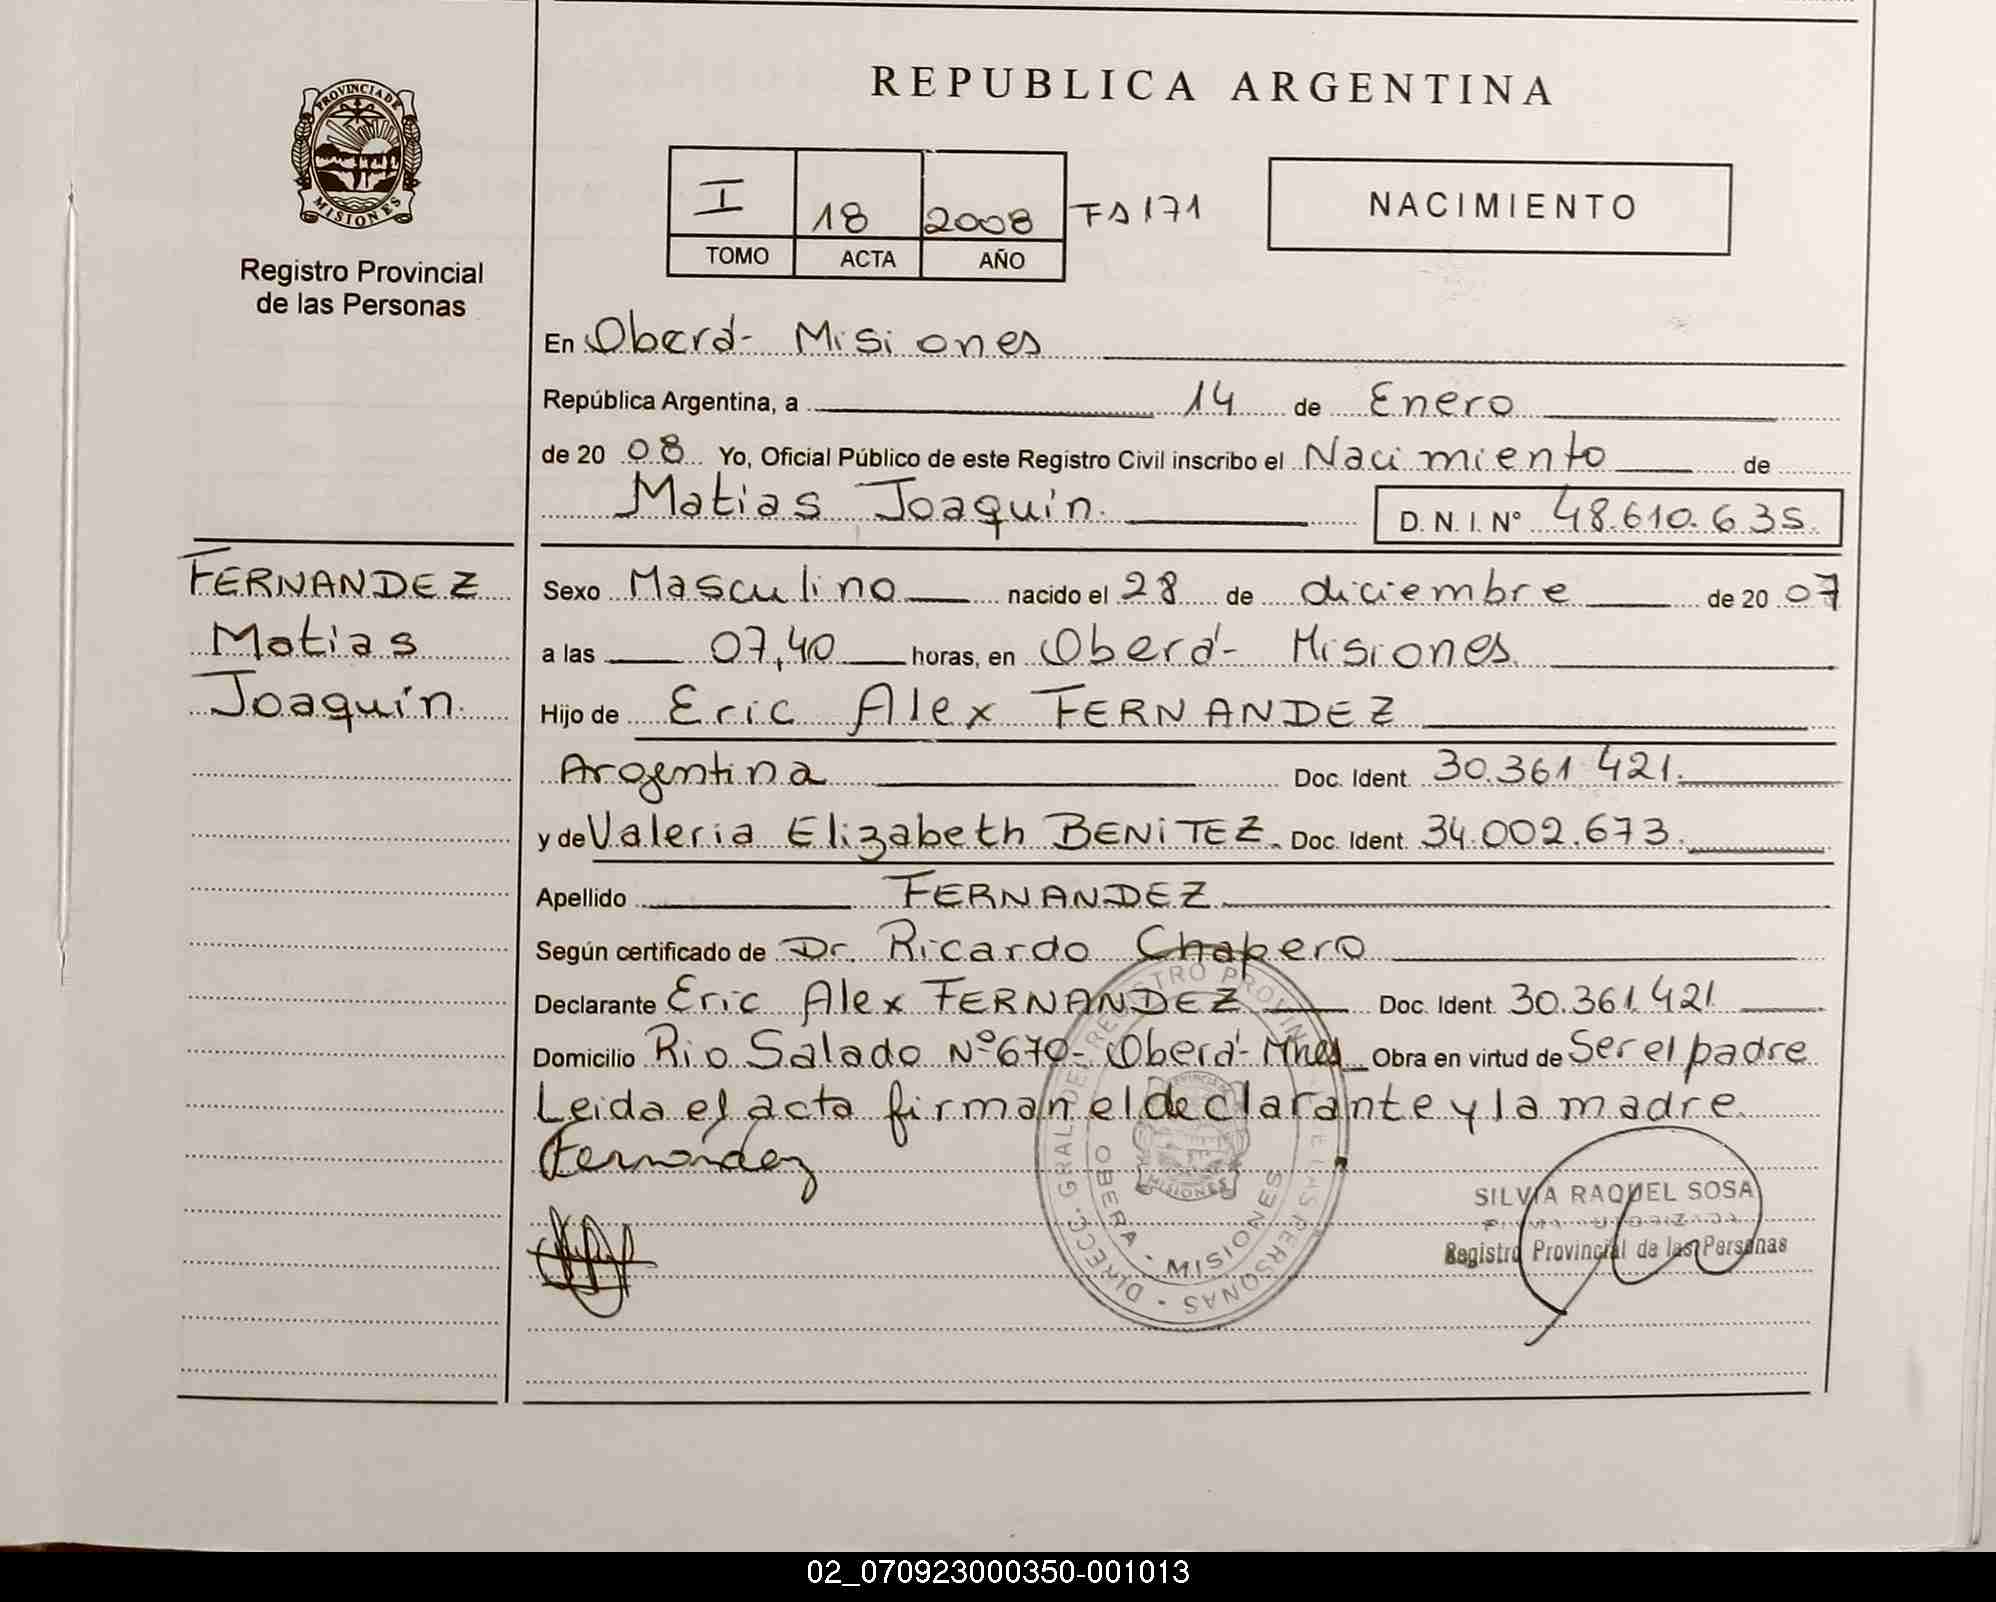 REPUBLICA ARGENTINA
PROVINCIA DE
MISIONES
Registro Provincial
de las Personas
I 18 2008 Fº 171
TOMO ACTA AÑO
NACIMIENTO
En Oberá - Misiones
República Argentina, a 14 de Enero
de 20 08 Yo, Oficial Público de este Registro Civil inscribo el Nacimiento de
Matias Joaquín. D. N. I. Nº 48.610.635.
FERNANDEZ
Matias
Joaquín.
Sexo Masculino nacido el 28 de diciembre de 20 07
a las 07,40 horas, en Oberá - Misiones
Hijo de Eric Alex FERNANDEZ
Argentina Doc. Ident. 30.361.421.
y de Valeria Elizabeth BENiTEZ. Doc. Ident. 34.002.673.
Apellido FERNANDEZ
Según certificado de Dr. Ricardo Chapero
Declarante Eric Alex FERNANDEZ Doc. Ident. 30.361.421
Domicilio Rio Salado Nº 670 - Oberá - Mnes Obra en virtud de Ser el padre
Leida el acta firman el declarante y la madre.
Fernández
DIRECC. GRAL. DEL REGISTRO PROVINCIAL DE LAS PERSONAS
OBERA - MISIONES
MISIONES
SILVIA RAQUEL SOSA
Registro Provincial de las Personas
02_070923000350-001013